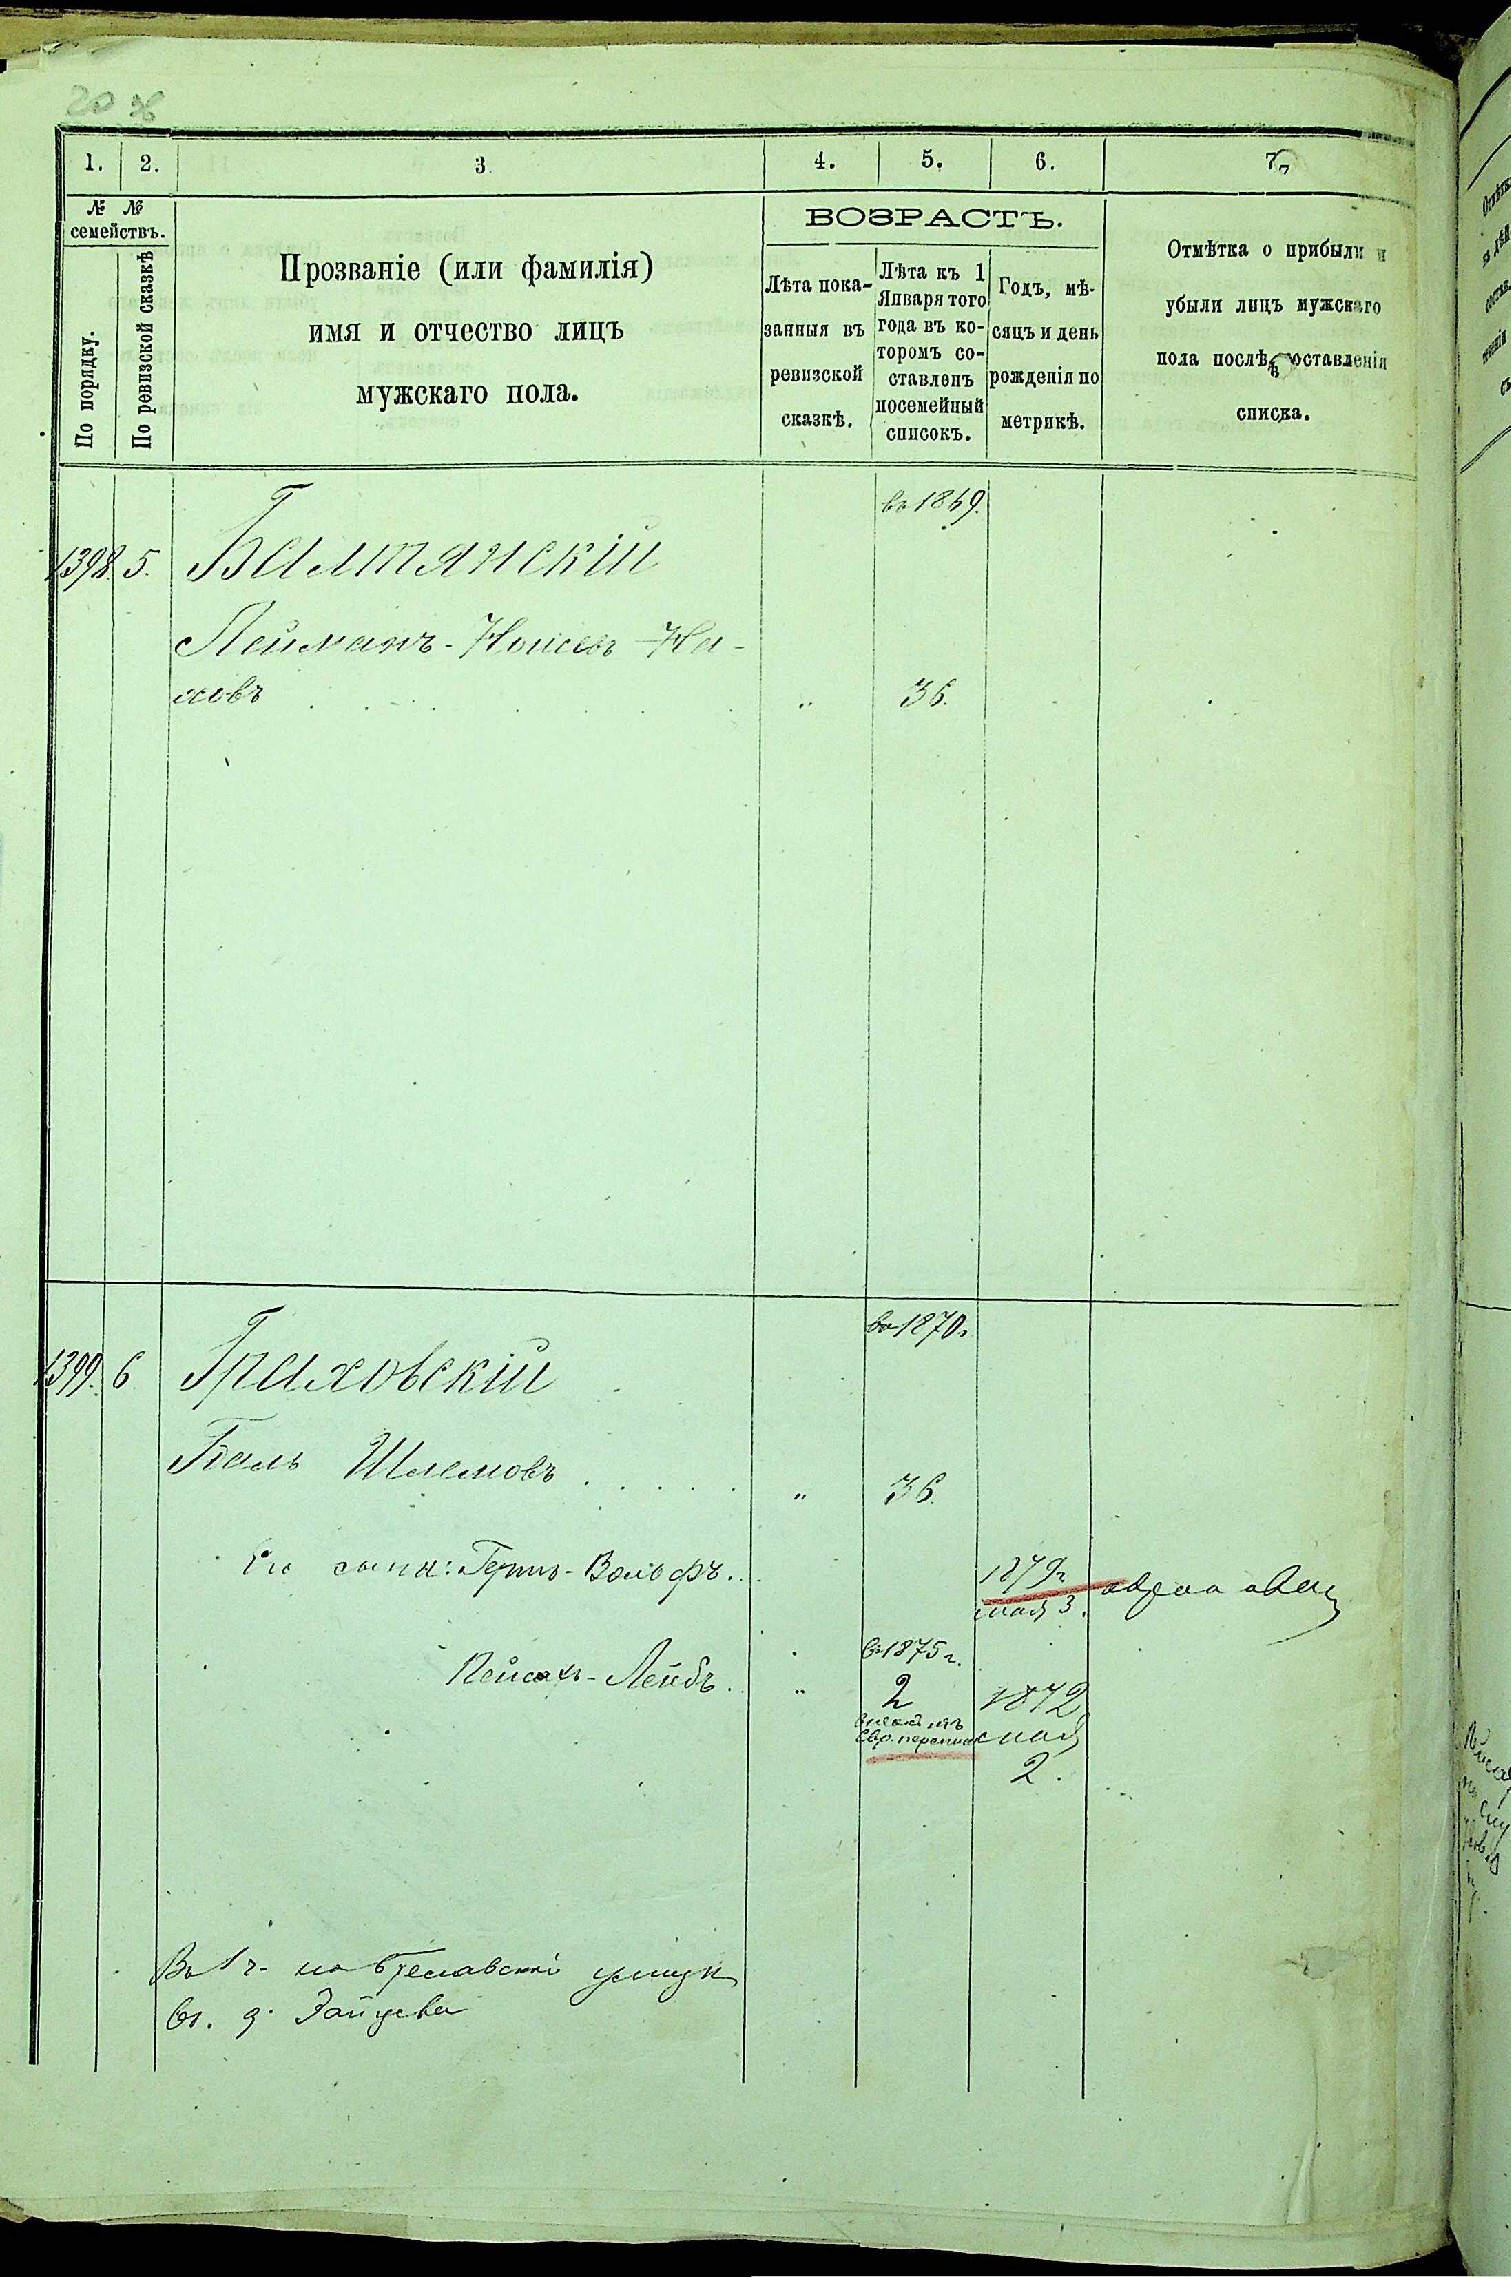 1. 2. 3 4. 5. 6. 7
№ №
семействъ.
По порядку.
По ревизской сказкѣ
Прозваніе (или фамилія)
имя и отчество лицъ
мужскаго пола.
ВОЗРАСТЪ.
Лѣта пока-
занныя въ
ревизской
сказкѣ.
Лѣта къ 1
Января того
года въ ко-
торомъ со-
ставленъ
посемейный
списокъ.
Годъ, мѣ-
сяцъ и день
рожденія по
метрикѣ.
Отмѣтка о прибыли и
убыли лицъ мужскаго
пола послѣ составленія
списка.
1398. 5. Балтянскій
Лейманъ-
ховъ „ 36.
въ 1870г.
1399. 6 Граховскій
Шлемовъ „ 36.
Его сынъ: Гершъ-Вольфъ
1879г
мая 3.
въ 1875 г.
Пейсахъ-Лейбъ. „ 2 1872
мая
2.